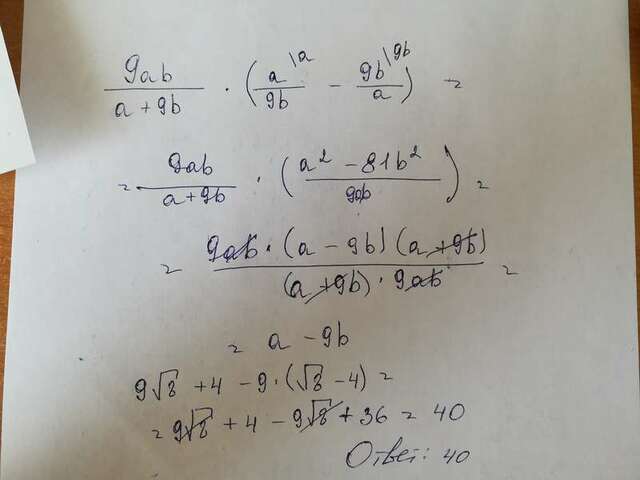 9ab/(a + 9b) · (a\a/9b − 9b\9b/a) =
= 9ab/(a + 9b) · ((a² − 81b²)/9ab) =
= 9ab · (a − 9b)(a + 9b)/((a + 9b) · 9ab) =
= a − 9b
9√8 + 4 − 9 · (√8 − 4) =
= 9√8 + 4 − 9√8 + 36 = 40
Ответ: 40